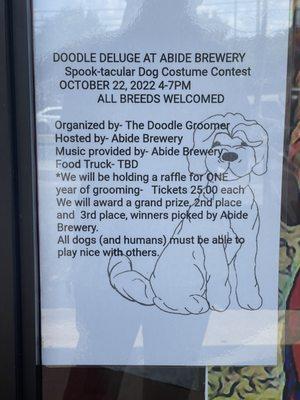 DOODLE DELUGE AT ABIDE BREWERY
Spook-tacular Dog Costume Contest
OCTOBER 22, 2022 4-7PM
ALL BREEDS WELCOMED
Organized by- The Doodle Groomer
Hosted by- Abide Brewery
Music provided by- Abide Brewery
Food Truck- TBD
*We will be holding a raffle for ONE
year of grooming- Tickets 25.00 each
We will award a grand prize, 2nd place
and 3rd place, winners picked by Abide
Brewery.
All dogs (and humans) must be able to
play nice with others.